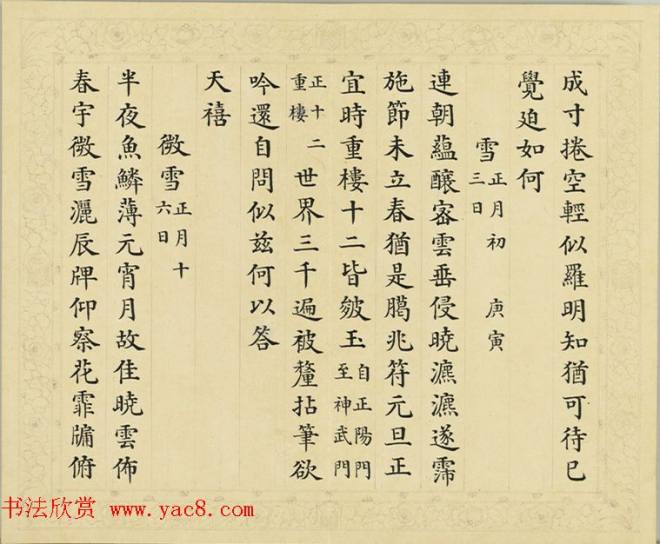 成寸捲空輕似羅明知猶可待已
覺迫如何
雪 正月初三日 庚寅
連朝蘊釀密雲垂侵曉瀌瀌遂霈
施節未立春猶是臈兆符元旦正
宜時重樓十二皆皴玉 自正陽門至神武門
正十二重樓 世界三千遍被釐拈筆欲
吟還自問似茲何以答
天禧
微雪 正月十六日
半夜魚鱗薄元宵月故佳曉雲佈
春宇微雪灑辰牌仰察花霏牖俯
书法欣赏 www.yac8.com